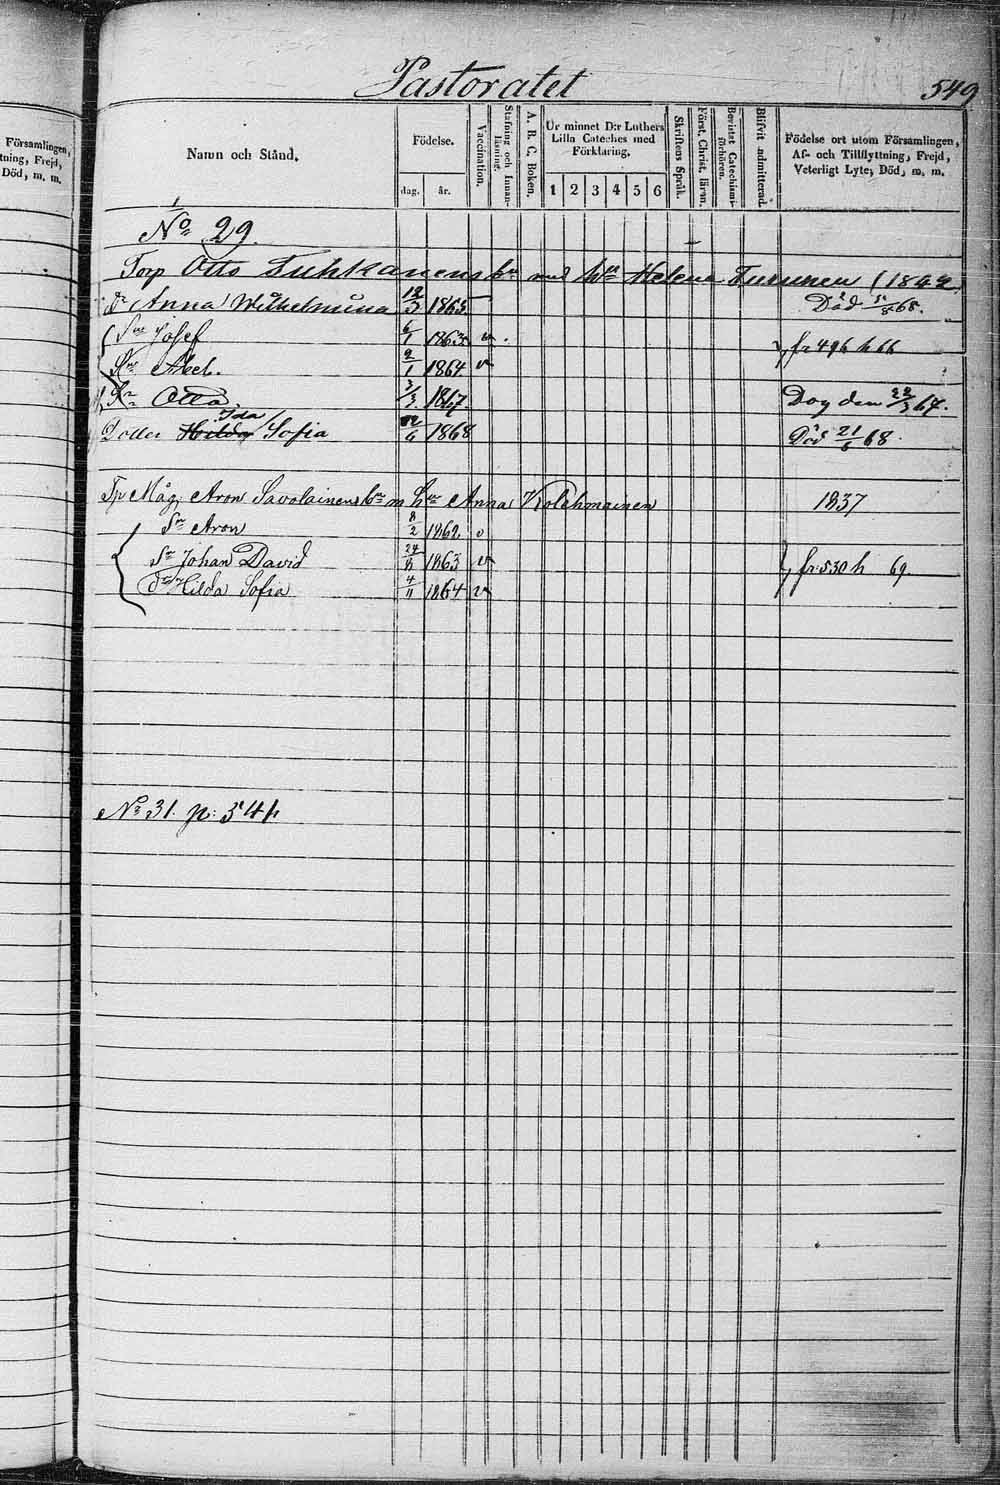 Pastoratet 549
Församlingen,
tning, Frejd,
Död, m. m.
Namn och Stånd.
Födelse.
dag. år.
Vaccination.
Stafning och Innan-
läsning.
A. B. C. Boken.
Ur minnet D:r Luthers
Lilla Cateches med
Förklaring.
1 2 3 4 5 6
Skriftens Språk.
Först. Christ. lärin.
Bevistat Catechismi-
förhören.
Blifvit admitterad.
Födelse ort utom Församlingen,
Af- och Tillflyttning, Frejd,
Veterligt Lyte, Död, m. m.
No 29.
Torp Otto Tuhkanens br med hu Helena Turunen (1842
dr Anna Wilhelmina 12/3 1865 Död 68.
Sne Josef 6/1 1863 v
Sne Abel. 2/1 1864 v fr 496 h 66
Sn Otto. 3/3 1867. Dog den 22/3 67.
Dotter Hilda Ida Sofia 6 1868 Död 21/6 68.
Tp Måg Aron Savolainens br m hu Anna Kolehmainen 1837
Sn Aron 8/2 1862 v
Sn Johan David 24/8 1863 v fr 530 h 69
dr Hilda Sofia 4/11 1864 v
No 31. p: 544